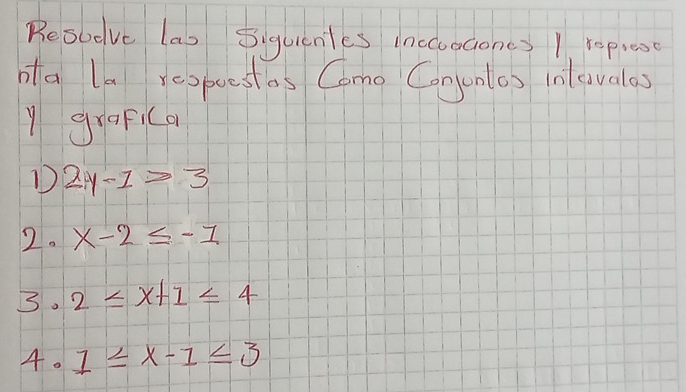 Resuelve las Siguientes inecuaciones y represe
nta la respuestas Como Conjuntos intervalos
y grafica
1) 2y-1 > 3
2. x-2 ≤ -1
3. 2 ≤ x+1 ≤ 4
4. 1 ≤ x-1 ≤ 3